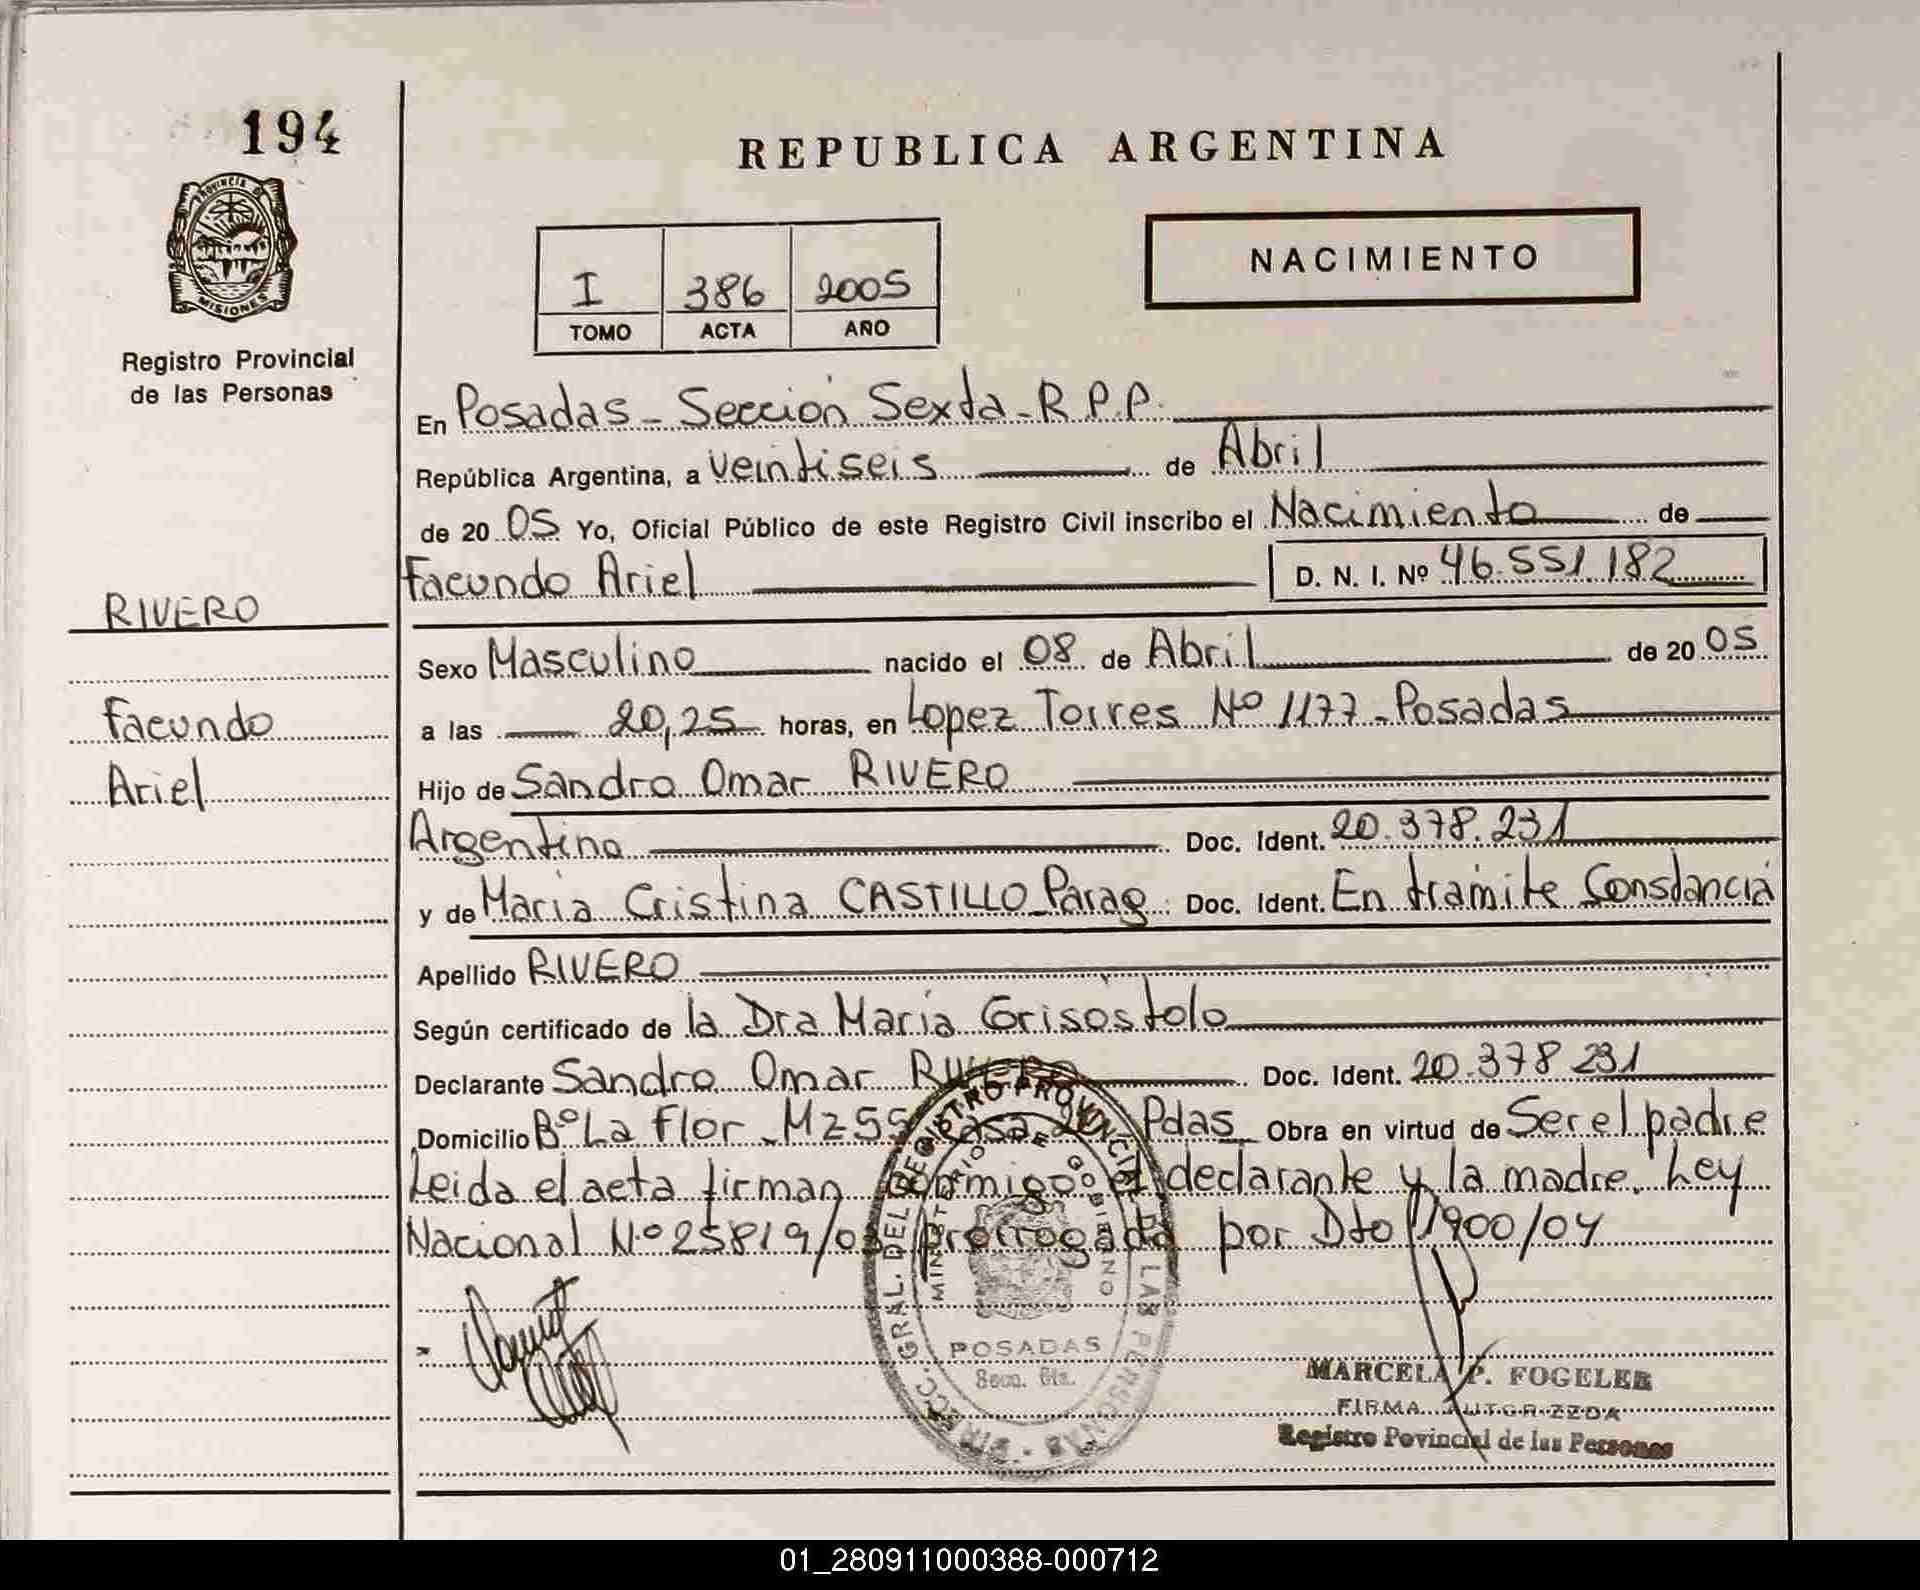 194
PROVINCIA DE
MISIONES
Registro Provincial
de las Personas
RIVERO
Facundo
Ariel
REPUBLICA ARGENTINA
I 386 2005
TOMO ACTA AÑO
NACIMIENTO
En Posadas - Sección Sexta - R.P.P.
República Argentina, a veintiseis de Abril
de 20 05 Yo, Oficial Público de este Registro Civil inscribo el Nacimiento de
Facundo Ariel D. N. I. Nº 46.551.182
Sexo Masculino nacido el 08 de Abril de 20 05
a las 20,25 horas, en Lopez Torres Nº 1177 - Posadas
Hijo de Sandro Omar RIVERO
Argentino Doc. Ident. 20.378.231
y de Maria Cristina CASTILLO Parag. Doc. Ident. En tramite Constancia
Apellido RIVERO
Según certificado de la Dra Maria Grisóstolo
Declarante Sandro Omar RIVERO Doc. Ident. 20.378 231
Domicilio Bº La Flor - Mz 55 Casa Pdas. Obra en virtud de Ser el padre
Leida el acta firman conmigo el declarante y la madre. Ley
Nacional Nº 25819/03 prorrogada por Dto 1900/04
DIRECC. GRAL. DEL REGISTRO PROVINCIAL DE LAS PERSONAS
MINISTERIO DE GOBIERNO
POSADAS
Secc. 6ta.
MARCELA P. FOGELER
FIRMA AUTORIZZDA
Registro Povincial de las Personas
01_280911000388-000712